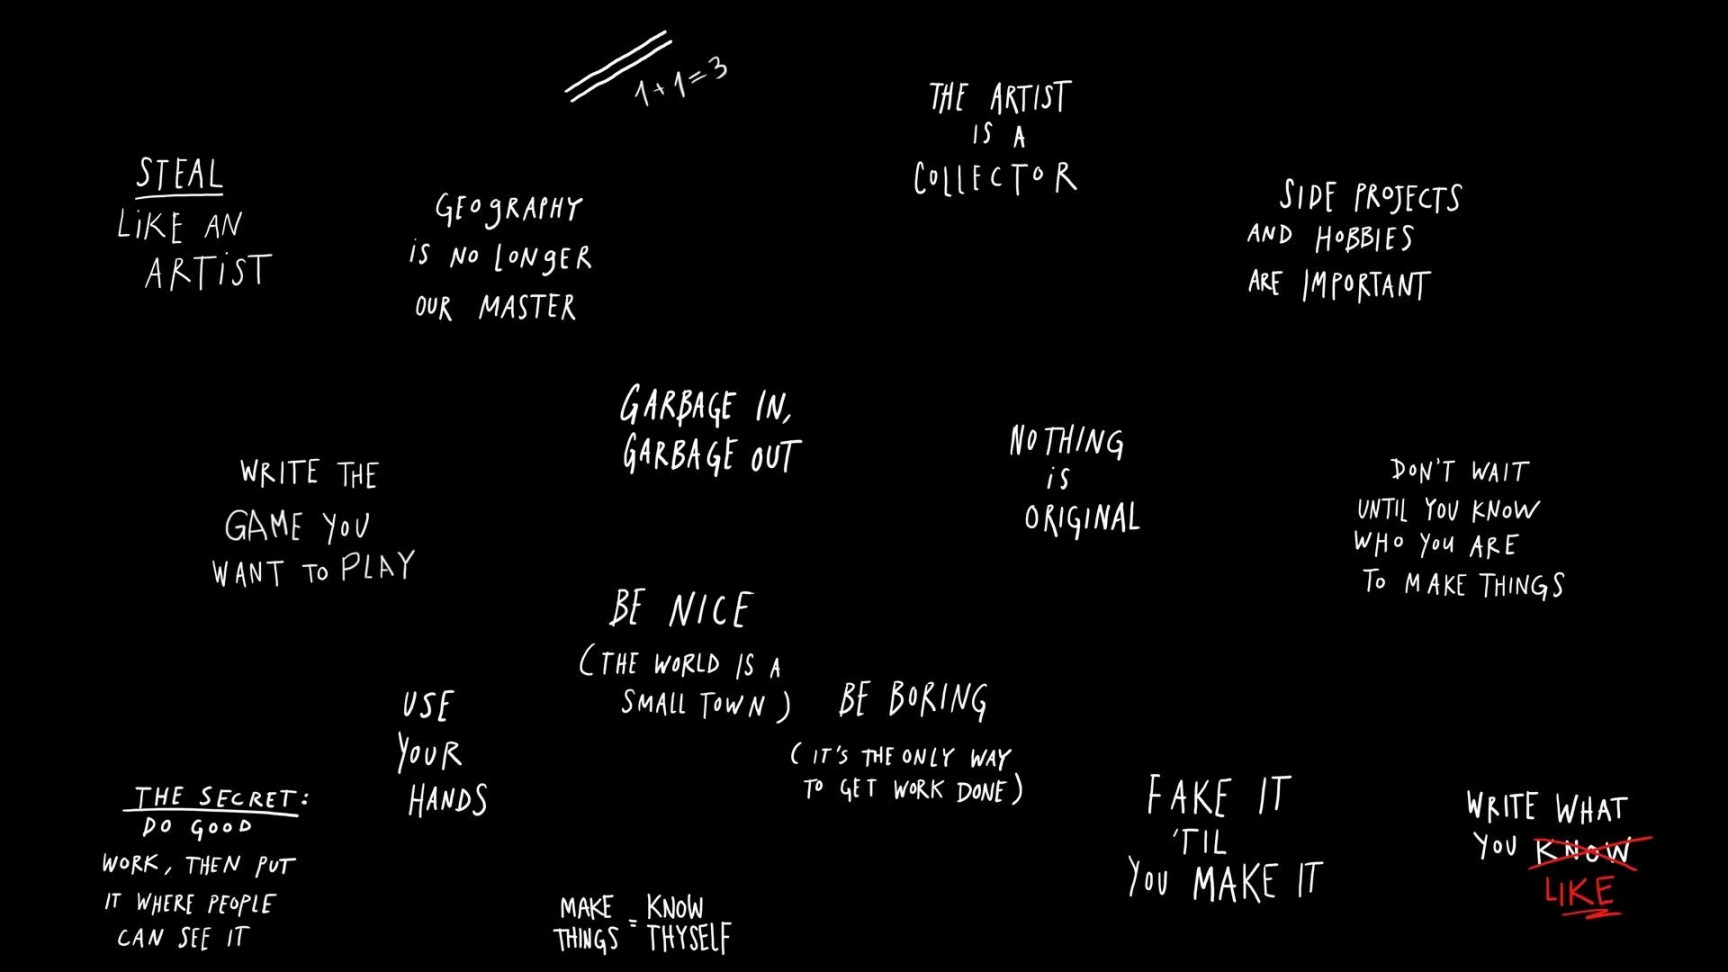 1+1=3
THE ARTIST
IS A
COLLECTOR
STEAL
LIKE AN
ARTIST
GEOGRAPHY
IS NO LONGER
OUR MASTER
SIDE PROJECTS
AND HOBBIES
ARE IMPORTANT
GARBAGE IN,
GARBAGE OUT
NOTHING
IS
ORIGINAL
WRITE THE
GAME YOU
WANT TO PLAY
DON'T WAIT
UNTIL YOU KNOW
WHO YOU ARE
TO MAKE THINGS
BE NICE
(THE WORLD IS A
SMALL TOWN)
USE
YOUR
HANDS
BE BORING
(IT'S THE ONLY WAY
TO GET WORK DONE)
THE SECRET:
DO GOOD
WORK, THEN PUT
IT WHERE PEOPLE
CAN SEE IT
FAKE IT
'TIL
YOU MAKE IT
WRITE WHAT
YOU KNOW
LIKE
MAKE THINGS = KNOW THYSELF